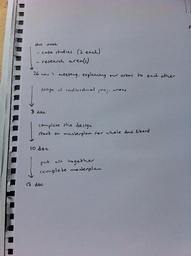 this week
- case studies (2 each)
- research area(s)
26 nov : meeting, explaining our areas to each other
scope of individual proj. areas
3 dec
complete the design
start on masterplan for whole
10 dec
put all together
complete masterplan
15 dec